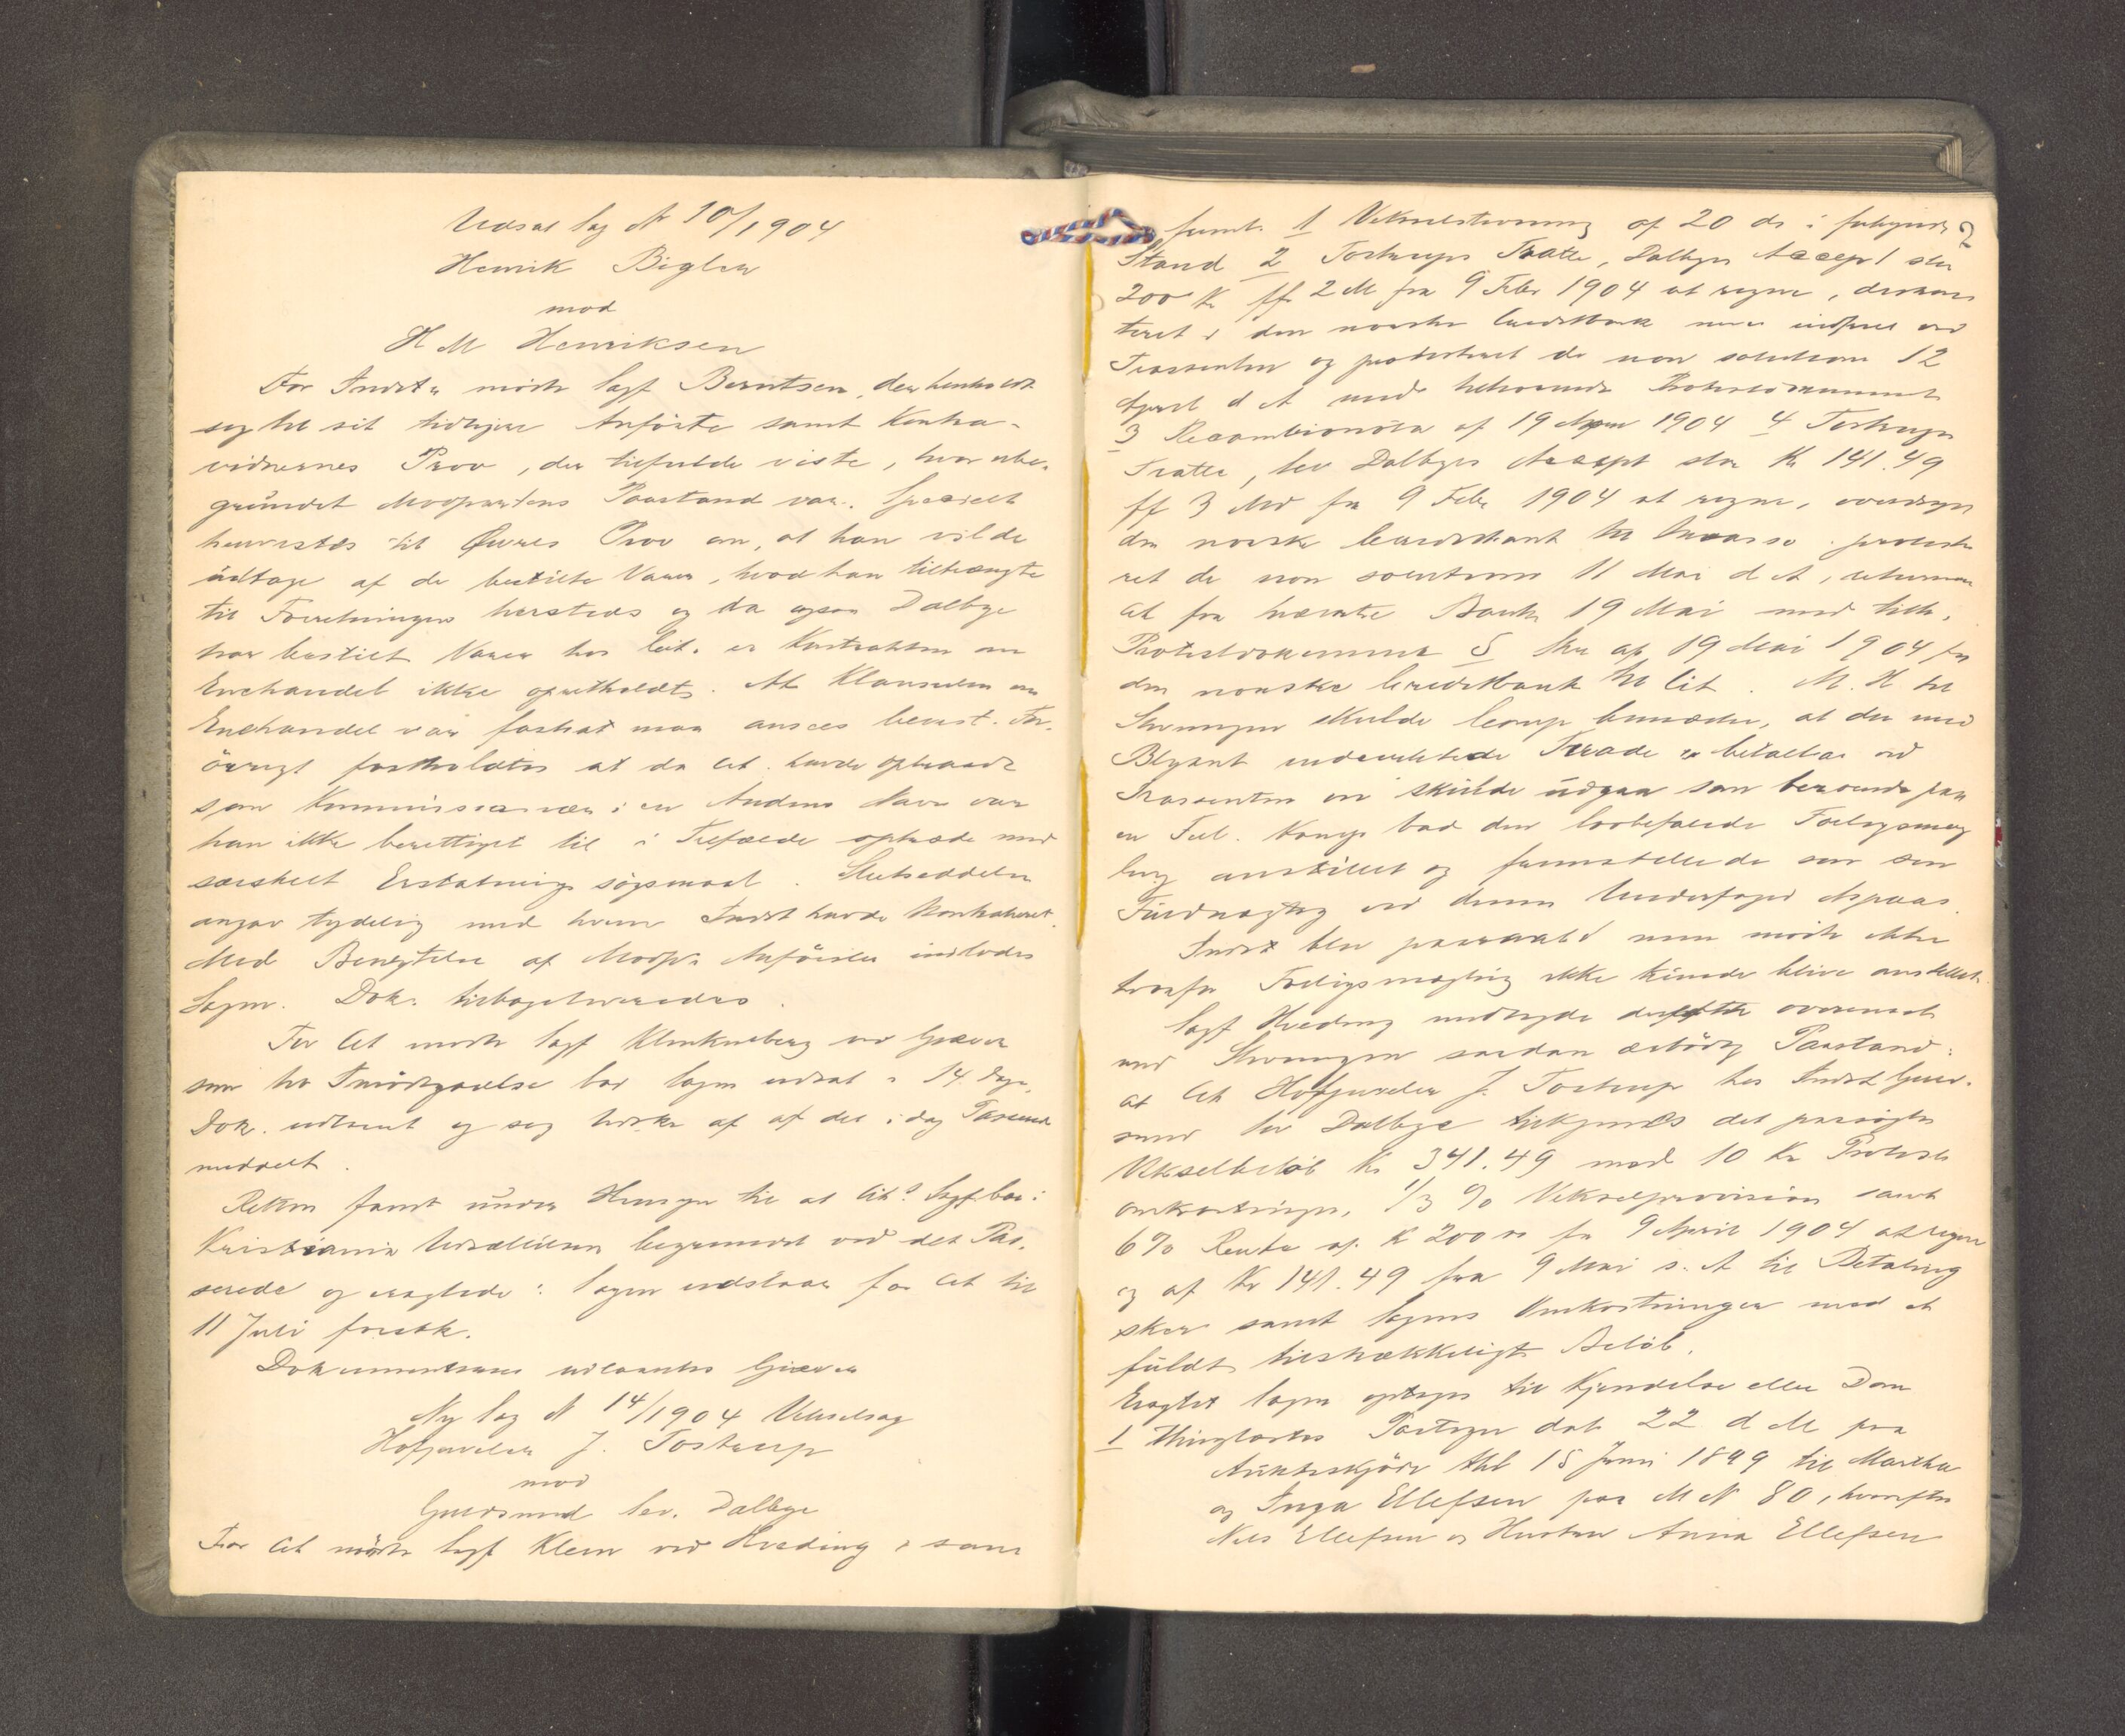 Udsat Sag N 10/1904
Henrik Bigler
mod
H M Henriksen
For Indst. mødte Sagf Berntsen, der henholdt
sig til sit tidligere Anførte samt Kontra-
vidnernes Prov, der tilfulde viste, hvor ube-
grundet Modpartens Paastand var. Specielt
henvistes til Prov om, at han vilde
udtage af de bestilte Varer, hvad han tiltrængte
til Forretningen hersteds og da ogsaa Dalbye
har bestilt Varer hos Cit. er Kontrakten om
Enehandel ikke opretholdt. At Klausulen om
Enehandel var fastsat maa ansees bevist. For-
øvrigt fastholdtes at da Cit. havde optraadt
som Kommissionær i en Andens Navn var
han ikke berettiget til i Tilfælde optræde med
særskilt Erstatningssøgsmaal. Slutseddelen
angav tydelig med hvem Indst havde kontraheret.
Med Benegtelse af Modp.s Anførsler indlodes
Sagen. Dok. tilbageleveredes.
For Cit mødte Sagf Klinkenberg ved Giæver
som til Imødegaaelse bad Sagen udsat i 14 Dage,
Dok. udlaant og sig Udskr af af det i dag Passerede
meddelt.
Retten fandt under Hensyn til at Cit.s Sagf bor i
Kristiania Udsættelsen begrundet ved det Pas-
serede og eragtede: Sagen udstaar for Cit til
11 Juli førstk.
Dokumenterne udlaantes Giæver
Ny Sag N 14/1904 Vekselsag
Hofjuveler J. Tostrup
mod
Guldsmed Dalbye
For Cit mødte Sagf Klem ved Hveding, som
freml. 1 Vekselstevning af 20 ds i forkyndt 2
Stand 2 Tostrups Tratte, Dalbyes Accept stor
200 Kr pr 2 M fra 9 Febr 1904 at regne, diskon-
teret i den norske Creditbank men indfriet ved
Trassenten og protesteret de non solutione 12
April d A med tilhørende Protestdokument
3 Recambionota af 19 April 1904 4 Tostrups
Tratte, Dalbyes Accept stor Kr 141.49
pr 3 Md fra 9 Febr 1904 at regne, overdraget
den norske Creditbank til Incasso proteste-
ret de non solutione 11 Mai d A, returne-
ret fra nævnte Bank 19 Mai med tilh.
Protestdokument 5 Skr af 19 Mai 1904 fra
den norske Creditbank til Cit. M. H til
Stevningen skulde Comp bemærke, at den med
Blyant understregede Tirade "betaltes ved
Trassenten" skulde udgaa som beroende paa
en Feil. Komp bad den lovbefalede Forligsmeg-
ling anstillet og fremstillede som sin
Fuldmægtig ved denne Underfoged Aspaas.
Indst blev paaraabt men mødte ikke
hvorfor Forligsmægling ikke kunde blive anstillet.
Sagf Hveding nedlagde derefter overensst
med Stevningen saadan ærbødig Paastand:
at Cit Hofjuveler J. Tostrup hos Indst Guld-
smed Dalbye tilkjendes det paasøgte
Vekselbeløb Kr 341.49 med 10 Kr Protest-
omkostninger, 1/3 % Vekselprovision samt
6% Rente af K 200 00 fra 9 April 1904 at regne
og af Kr 141.49 fra 9 Mai s. A til Betaling
sker samt Sagens Omkostninger med et
fuldt tilstrækkeligt Beløb.
Eragtet Sagen optages til Kjendelse eller Dom
1 Thinglæstes dat 22 d M paa
Auktsskjøde thl 15 Juni 1899 til Martha
og Inga Ellefsen paa M N 80, hvorefter
Nils Ellefsen og Hustru Anna Ellefsen